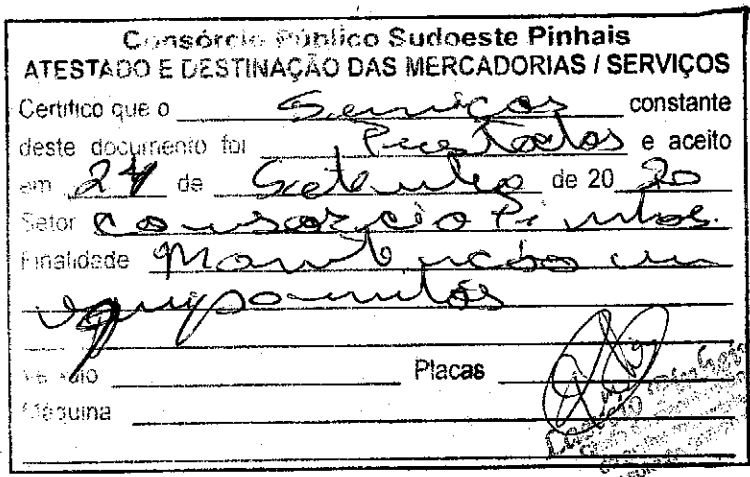 Consórcio Público Sudoeste Pinhais
ATESTADO E DESTINAÇÃO DAS MERCADORIAS / SERVIÇOS
Certifico que o Serviços constante
deste documento foi Prestados e aceito
em 24 de Setembro de 2020
Setor Consorcio Pinhais.
Finalidade Manutenção em
equipamentos
Veículo Placas
Máquina